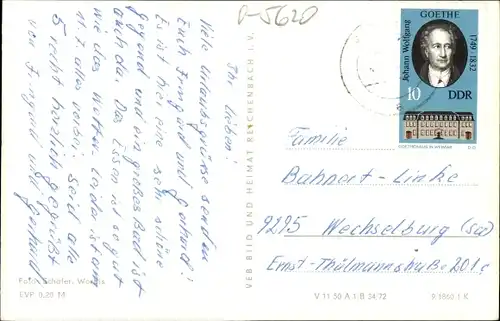 0-5620
Ihr Lieben!
Viele Urlaubsgrüße senden
Euch Irmgard und Gerhard!
Es ist hier eine sehr schöne
Gegend und ein großes Bad ist
auch da. Das Essen ist so gut
wie das Wetter. Leider ist am
11.7. alles vorbei, seid alle
5 recht herzlich gegrüßt
von Irmgard und Gerhard
Foto: Schäfer, Worbis
EVP 0,20 M
VEB BILD UND HEIMAT REICHENBACH I. V.
GOETHE
Johann Wolfgang
1749-1832
10
DDR
GOETHEHAUS IN WEIMAR
Familie
Bahnert-Linke
9295 Wechselburg (Sa)
Ernst-Thälmannstraße 201c
V 11 50 A 1/B 24/72